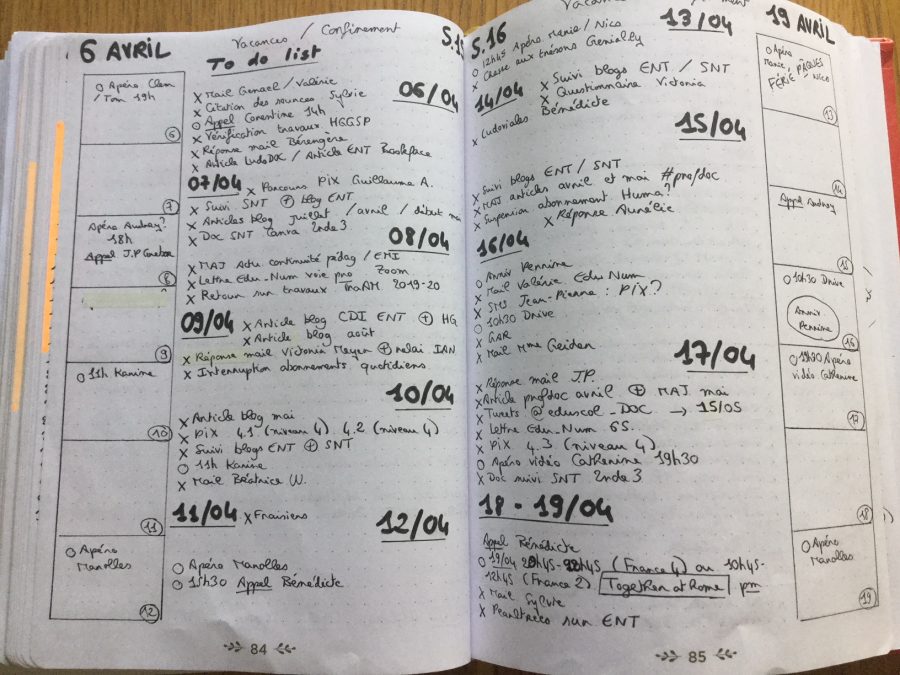 6 AVRIL
Vacances / Confinement
S.15
To do list
O Apéro Clem
/ Tom 19h
6
7
Apéro Audrey?
18h
Appel J.P
8
9
O 11h Karine
10
11
O Apéro
Manolles
12
06/04
x Mail Genael / Valérie
x Citation des sources Sylvie
O Appel Corentine 14h
x Vérification travaux HGGSP
x Réponse mail Bérengère
x Article LudoDOC / Article ENT Bookface
07/04
x Parcours PIX Guillaume A.
x Suivi SNT + blog ENT
x Articles blog juillet / avril / début mai
x Doc SNT Canva 2nde 3
08/04
x MAJ Actu continuité pédag / EMI
x Lettre Edu_Num voie pro Zoom
x Retour sur travaux TraAM 2019-20
09/04
x Article blog CDI ENT + HG
x Article blog août
x Réponse mail Victoria Meyer + relai IAN
x Interruption abonnements quotidiens
10/04
x Article blog mai
x PIX 4.1 (niveau 4) 4.2 (niveau 4)
x Suivi blogs ENT + SNT
O 11h Karine
x Mail Béatrice W.
11/04
x Fraisiers
12/04
O Apéro Manolles
O 15h30 Appel Bénédicte
84
Vacances
S.16
13/04
19 AVRIL
O 12h45 Apéro Marie / Nico
O Chasse aux trésors Genially
14/04
x Suivi blogs ENT / SNT
x Questionnaire Victoria
x Ludoviales Bénédicte
15/04
x Suivi blogs ENT / SNT
x MAJ articles avril et mai #profdoc
x Suspension abonnement Huma?
x Réponse Aurélie
16/04
O Anniv Perrine
x Mail Valérie Edu_Num
x SMS Jean-Pierre : PIX?
O 10h30 Drive
x GAR
x Mail Mme Geiden
17/04
x Réponse mail J.P.
x Article profdoc avril + MAJ mai
x Tweets @eduscol_DOC → 15/05
x Lettre Edu_Num GS.
x PIX 4.3 (niveau 4)
O Apéro vidéo Catherine 19h30
x Doc suivi SNT 2nde 3
18 - 19/04
Appel Bénédicte
O 19/04 (France 4) ou 10h45-
12h45 (France 2) Together at Home pm
x Mail Sylvie
x Pearltrees sur ENT
85
O Apéro
Marie, Nico
FÉRIÉ PÂQUES
13
14
Appel Audrey
15
O 10h30 Drive
Anniv
Perrine
16
O 19h30 Apéro
vidéo Catherine
17
18
O Apéro
Manolles
19